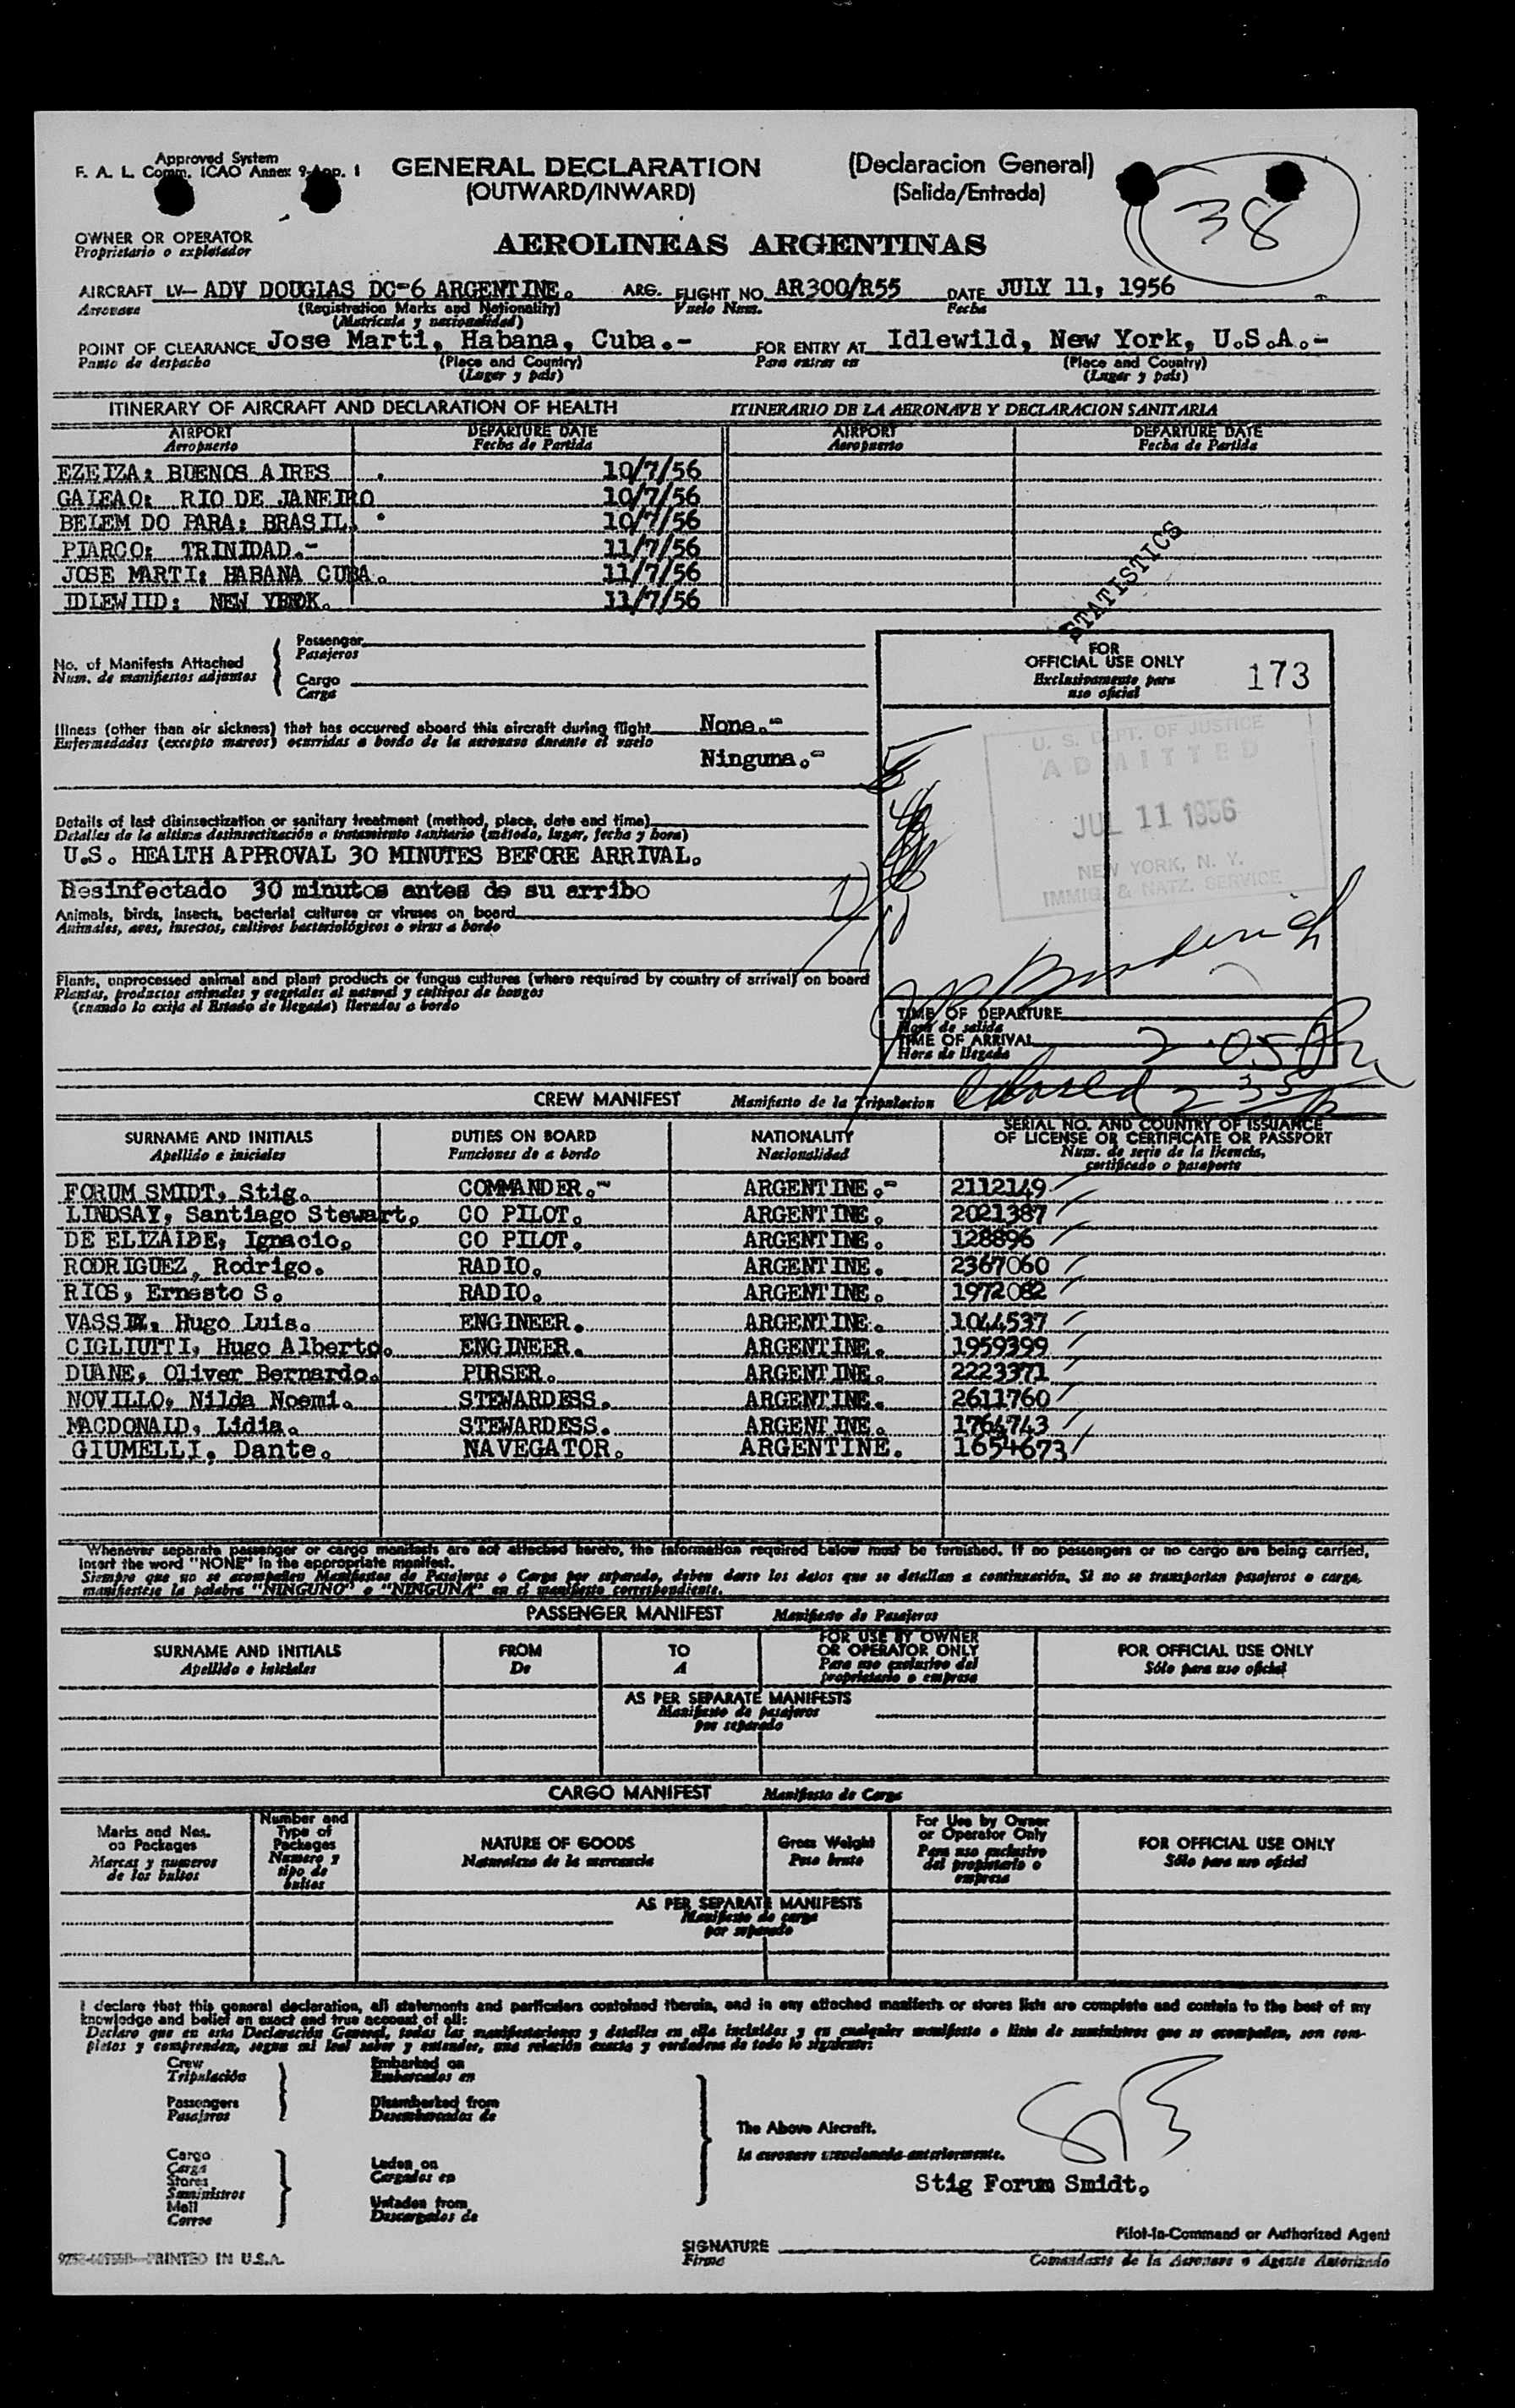 Approved System
F. A. L. Comm. ICAO Annex 9-App. 1
GENERAL DECLARATION
(OUTWARD/INWARD)
(Declaracion General)
(Salida/Entrada)
38
OWNER OR OPERATOR
Proprietario o explotador
AEROLINEAS ARGENTINAS
AIRCRAFT LV- ADV DOUGLAS DC-6 ARGENTINE. ARG. FLIGHT NO. AR300/R55 DATE JULY 11, 1956
Aeronave (Registration Marks and Nationality) Vuelo Num. Fecha
(Matricula y nacionalidad)
POINT OF CLEARANCE Jose Marti, Habana, Cuba.- FOR ENTRY AT Idlewild, New York, U.S.A.-
Punto de despacho (Place and Country) Para entrar en (Place and Country)
(Lugar y pais) (Lugar y pais)
ITINERARY OF AIRCRAFT AND DECLARATION OF HEALTH ITINERARIO DE LA AERONAVE Y DECLARACION SANITARIA
AIRPORT DEPARTURE DATE AIRPORT DEPARTURE DATE
Aeropuerto Fecha de Partida Aeropuerto Fecha de Partida
EZEIZA: BUENOS AIRES . 10/7/56
GALEAO: RIO DE JANEIRO 10/7/56
BELEM DO PARA: BRASIL. 10/7/56
PIARCO: TRINIDAD.- 11/7/56
JOSE MARTI: HABANA CUBA. 11/7/56
IDLEWILD: NEW YORK. 11/7/56
STATISTICS
No. of Manifests Attached
Num. de manifiestos adjuntos
Passenger
Pasajeros
Cargo
Carga
FOR
OFFICIAL USE ONLY
Exclusivamente para
uso oficial
173
Illness (other than air sickness) that has occurred aboard this aircraft during flight None.-
Enfermedades (excepto mareos) ocurridas a bordo de la aeronave durante el vuelo
Ninguna.-
U. S. DEPT. OF JUSTICE
ADMITTED
JUL 11 1956
NEW YORK, N. Y.
IMMIG. & NATZ. SERVICE
Details of last disinsectization or sanitary treatment (method, place, date and time)
Detalles de la ultima desinsectización o tratamiento sanitario (método, lugar, fecha y hora)
U.S. HEALTH APPROVAL 30 MINUTES BEFORE ARRIVAL.
Desinfectado 30 minutos antes de su arribo
Animals, birds, insects, bacterial cultures or viruses on board
Animales, aves, insectos, cultivos bacteriológicos o virus a bordo
Plants, unprocessed animal and plant products or fungus cultures (where required by country of arrival) on board
Plantas, productos animales y vegetales al natural y cultivos de hongos
(cuando lo exija el Estado de llegada) llevados a bordo
TIME OF DEPARTURE
Hora de salida
TIME OF ARRIVAL 2.05 P
Hora de llegada
2 35
CREW MANIFEST Manifiesto de la Tripulacion
SURNAME AND INITIALS DUTIES ON BOARD NATIONALITY SERIAL NO. AND COUNTRY OF ISSUANCE
OF LICENSE OR CERTIFICATE OR PASSPORT
Apellido e iniciales Funciones de a bordo Nacionalidad Num. de serie de la licencia,
certificado o pasaporte
FORUM SMIDT, Stig. COMMANDER.- ARGENTINE.- 2112149
LINDSAY, Santiago Stewart. CO PILOT. ARGENTINE. 2021387
DE ELIZAIDE, Ignacio. CO PILOT. ARGENTINE. 128896
RODRIGUEZ, Rodrigo. RADIO. ARGENTINE. 2367060
RIOS, Ernesto S. RADIO. ARGENTINE. 1972082
Hugo Luis. ENGINEER. ARGENTINE. 1044537
CIGLIUTTI, Hugo Alberto. ENGINEER. ARGENTINE. 1959399
DUANE, Oliver Bernardo. PURSER. ARGENTINE. 2223371
NOVILLO, Nilda Noemi. STEWARDESS. ARGENTINE. 2611760
MACDONALD, Lidia. STEWARDESS. ARGENTINE. 1764743
GIUMELLI, Dante. NAVEGATOR. ARGENTINE. 1654673
Whenever separate passenger or cargo manifests are not attached hereto, the information required below must be furnished. If no passengers or no cargo are being carried,
insert the word "NONE" in the appropriate manifest.
Siempre que no se acompañen Manifiestos de Pasajeros o Carga por separado, deben darse los datos que se detallan a continuación. Si no se transportan pasajeros o carga,
manifiestese la palabra "NINGUNO" o "NINGUNA" en el manifiesto correspondiente.
PASSENGER MANIFEST Manifiesto de Pasajeros
SURNAME AND INITIALS FROM TO FOR USE BY OWNER
OR OPERATOR ONLY FOR OFFICIAL USE ONLY
Apellido e iniciales De A Para uso exclusivo del
propietario o empresa Sólo para uso oficial
AS PER SEPARATE MANIFESTS
Manifiesto de pasajeros
por separado
CARGO MANIFEST Manifiesto de Carga
Marks and Nos.
on Packages
Marcas y numeros
de los bultos
Number and
Type of
Packages
Numero y
tipo de
bultos
NATURE OF GOODS
Naturaleza de la mercancia
Gross Weight
Peso bruto
For Use by Owner
or Operator Only
Para uso exclusivo
del propietario o
empresa
FOR OFFICIAL USE ONLY
Sólo para uso oficial
AS PER SEPARATE MANIFESTS
Manifiesto de carga
por separado
I declare that this general declaration, all statements and particulars contained therein, and in any attached manifests or stores lists are complete and contain to the best of my
knowledge and belief an exact and true account of all:
Declaro que en esta Declaración General, todas las manifestaciones y detalles en ella incluidos y en cualquier manifiesto o lista de suministros que se acompañen, son com-
pletos y comprenden, segun mi leal saber y entender, una relación exacta y verdadera de todo lo siguiente:
Crew
Tripulación
Passengers
Pasajeros
Embarked on
Embarcados en
Disembarked from
Desembarcados de
Cargo
Carga
Stores
Suministros
Mail
Correo
Laden on
Cargados en
Unladen from
Descargados de
The Above Aircraft.
la aeronave mencionada anteriormente.
Stig Forum Smidt.
Pilot-in-Command or Authorized Agent
SIGNATURE
Firma
Comandante de la Aeronave o Agente Autorizado
PRINTED IN U.S.A.